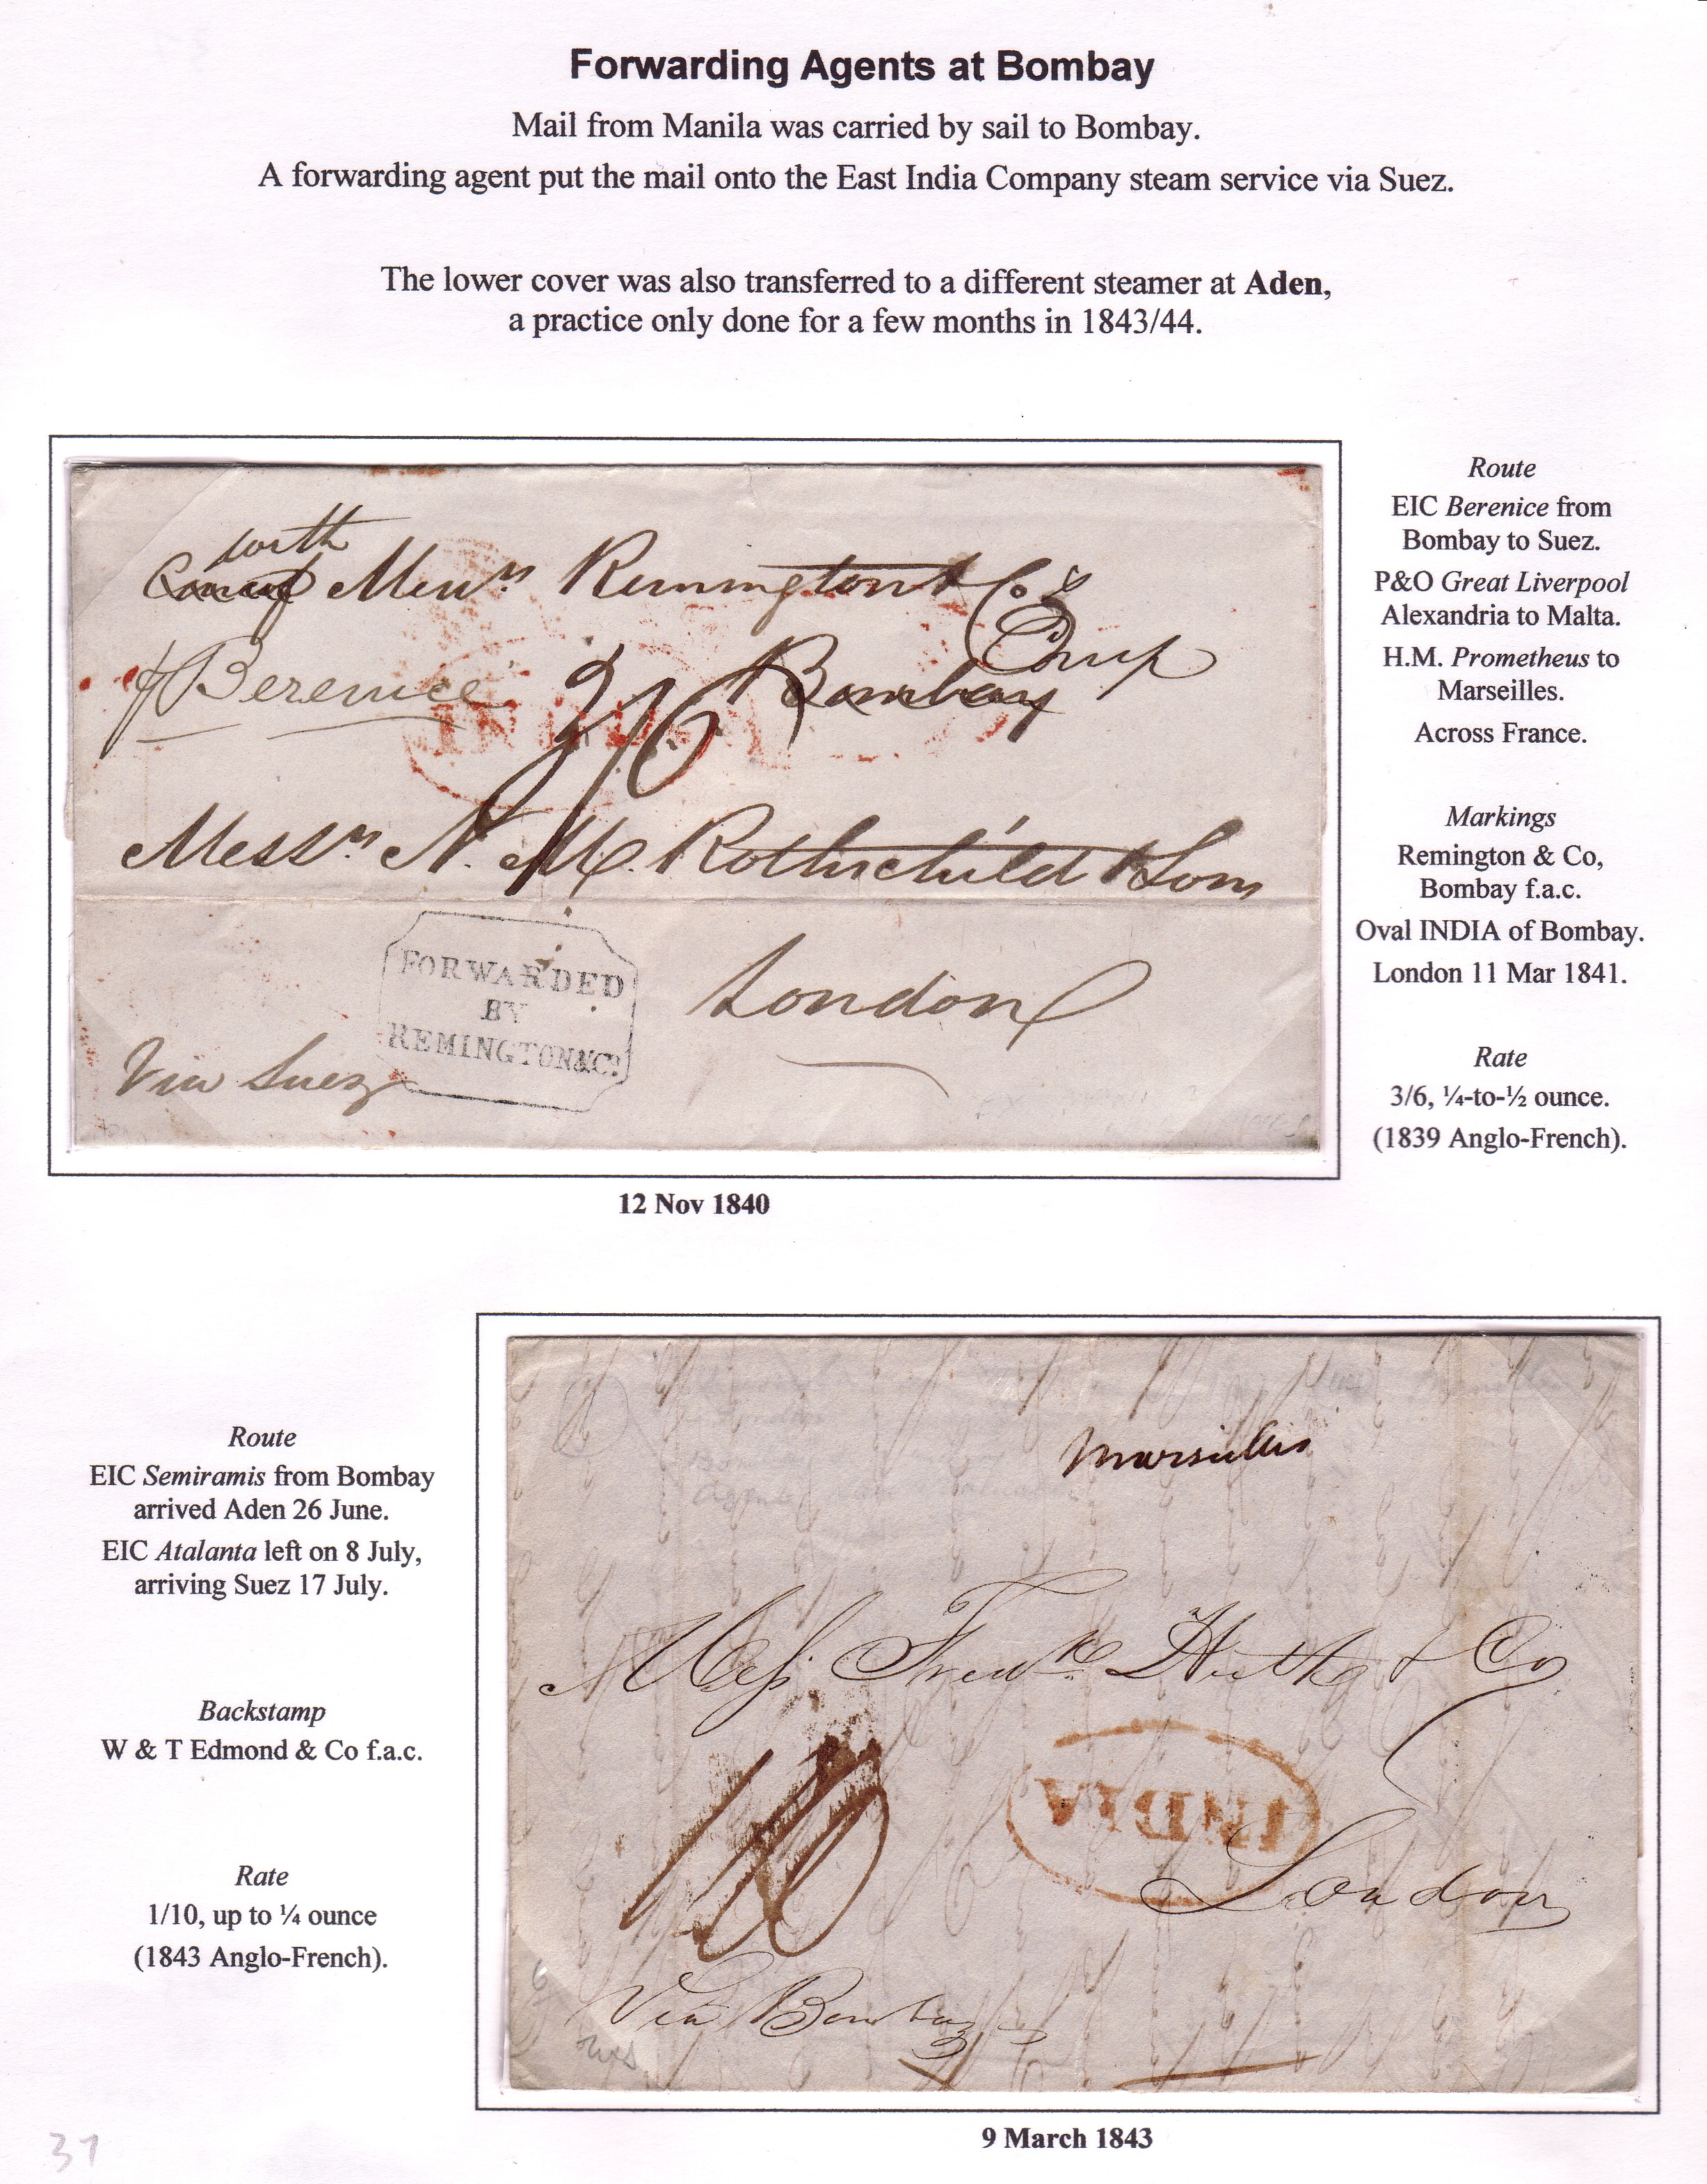 Forwarding Agents at Bombay
Mail from Manila was carried by sail to Bombay.
A forwarding agent put the mail onto the East India Company steam service via Suez.
The lower cover was also transferred to a different steamer at Aden,
a practice only done for a few months in 1843/44.
with
Messrs Remington & Co's
Bombay
p Berenice
INDIA
3/6
Messrs N. M. Rothschild & Sons
London
FORWARDED
BY
REMINGTON & Co.
Via Suez
12 Nov 1840
Route
EIC Berenice from
Bombay to Suez.
P&O Great Liverpool
Alexandria to Malta.
H.M. Prometheus to
Marseilles.
Across France.
Markings
Remington & Co,
Bombay f.a.c.
Oval INDIA of Bombay.
London 11 Mar 1841.
Rate
3/6, ¼-to-½ ounce.
(1839 Anglo-French).
Route
EIC Semiramis from Bombay
arrived Aden 26 June.
EIC Atalanta left on 8 July,
arriving Suez 17 July.
Backstamp
W & T Edmond & Co f.a.c.
Rate
1/10, up to ¼ ounce
(1843 Anglo-French).
Marseilles
Mess Fredk Huth & Co
1/10
INDIA
London
Via Bombay
9 March 1843
37